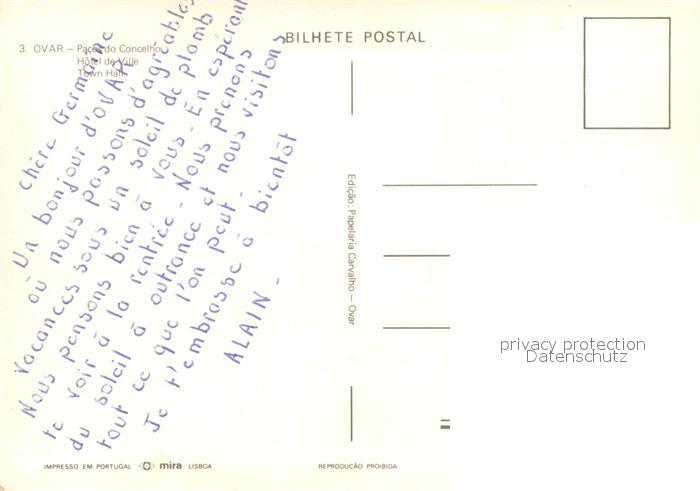 BILHETE POSTAL
3. OVAR — Paços do Concelho
Hôtel de Ville
Town Hall
chère Germaine
Un bonjour d'OVAR
où nous passons d'agréables
vacances sous un soleil de plomb
Nous pensons bien à vous - En espérant
te voir à la rentrée - Nous prenons
du soleil à outrance et nous visitons
tout ce que l'on peut -
Je t'embrasse à bientôt
ALAIN -
Edição: Papelaria Carvalho — Ovar
privacy protection
Datenschutz
IMPRESSO EM PORTUGAL mira LISBOA
REPRODUÇÃO PROIBIDA